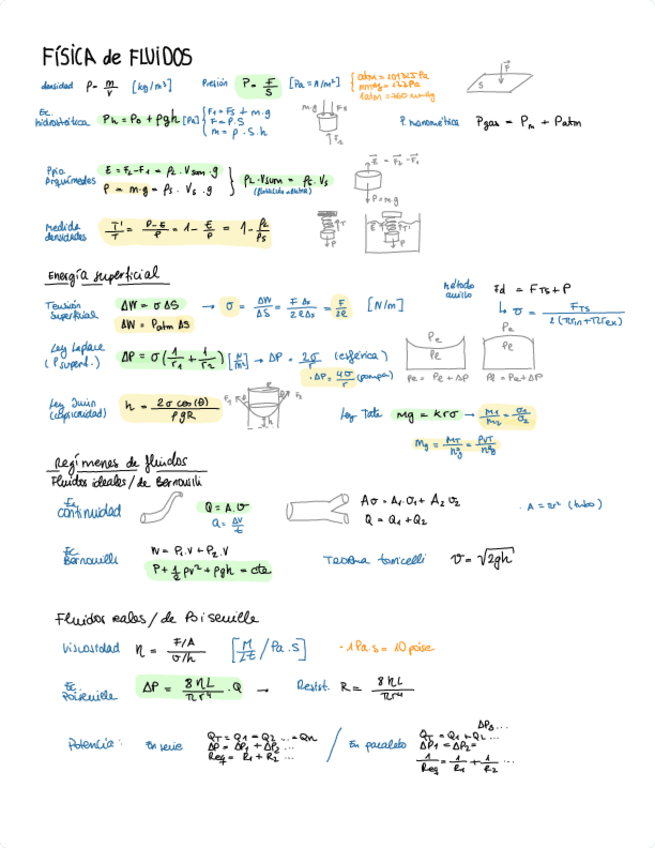 FÍSICA de FLUIDOS
densidad ρ = m/V [kg/m³] Presión P = F/S [Pa = N/m²] { atm = 101325 Pa
mmHg = 133 Pa
1 atm = 760 mmHg
F
S
Ec. hidrostática Ph = P0 + ρgh [Pa] { F1 = Fs + m·g
F = P·S
m = ρ·S·h
m·g Fs
P. manométrica Pgas = Pm + Patm
Ppio Arquímedes E = F2 - F1 = ρL · Vsum · g
P = m·g = ρs · Vs · g
} ρL · Vsum = ρs · Vs
E = F2 - F1
P = m·g
Medida densidades T'/T = P-E/P = 1 - E/P = 1 - ρL/ρs
T P E T' P
Energía superficial
Tensión superficial ΔW = σ ΔS → σ = ΔW/ΔS = F Δs/2ℓΔs = F/2ℓ [N/m]
ΔW = Patm ΔS
método anillo Fd = FTS + P
↳ σ = FTS/2(πrin + πrex)
Ley Laplace (P superf.) ΔP = σ(1/r1 + 1/r2) → ΔP = 2σ/r (esférica)
· ΔP = 4σ/r (pompa)
Pe Pe
Pe = Pe + ΔP Pe = Pe + ΔP
Ley Jurin (capilaridad) h = 2σ cos(θ)/ρgR
F1 F2 h
Ley Tate mg = krσ → M1/M2 = σ1/σ2
Mg = MT/nºg = ρVT/nºg
Regímenes de fluidos
Fluidos ideales / de Bernouilli
Ec continuidad Q = A·v
Q = ΔV/t
Av = A1·v1 + A2 v2
Q = Q1 + Q2
· A = πr² (tubo)
Ec Bernouilli W = P1·V + P2·V
P + 1/2 ρv² + ρgh = cte
Teorema torricelli v = √2gh
Fluidos reales / de Poiseuille
Viscosidad η = F/A / v/h [M/Lt / Pa·s] · 1 Pa·s = 10 poise
Ec Poiseuille ΔP = 8ηL/πr⁴ · Q → Resist. R = 8ηL/πr⁴
Potencia: En serie QT = Q1 = Q2 ... = Qn
ΔP = ΔP1 + ΔP2 ...
Req = R1 + R2 ...
/ En paralelo QT = Q1 + Q2 ...
ΔP1 = ΔP2 = ΔP3 ...
1/Req = 1/R1 + 1/R2 ...